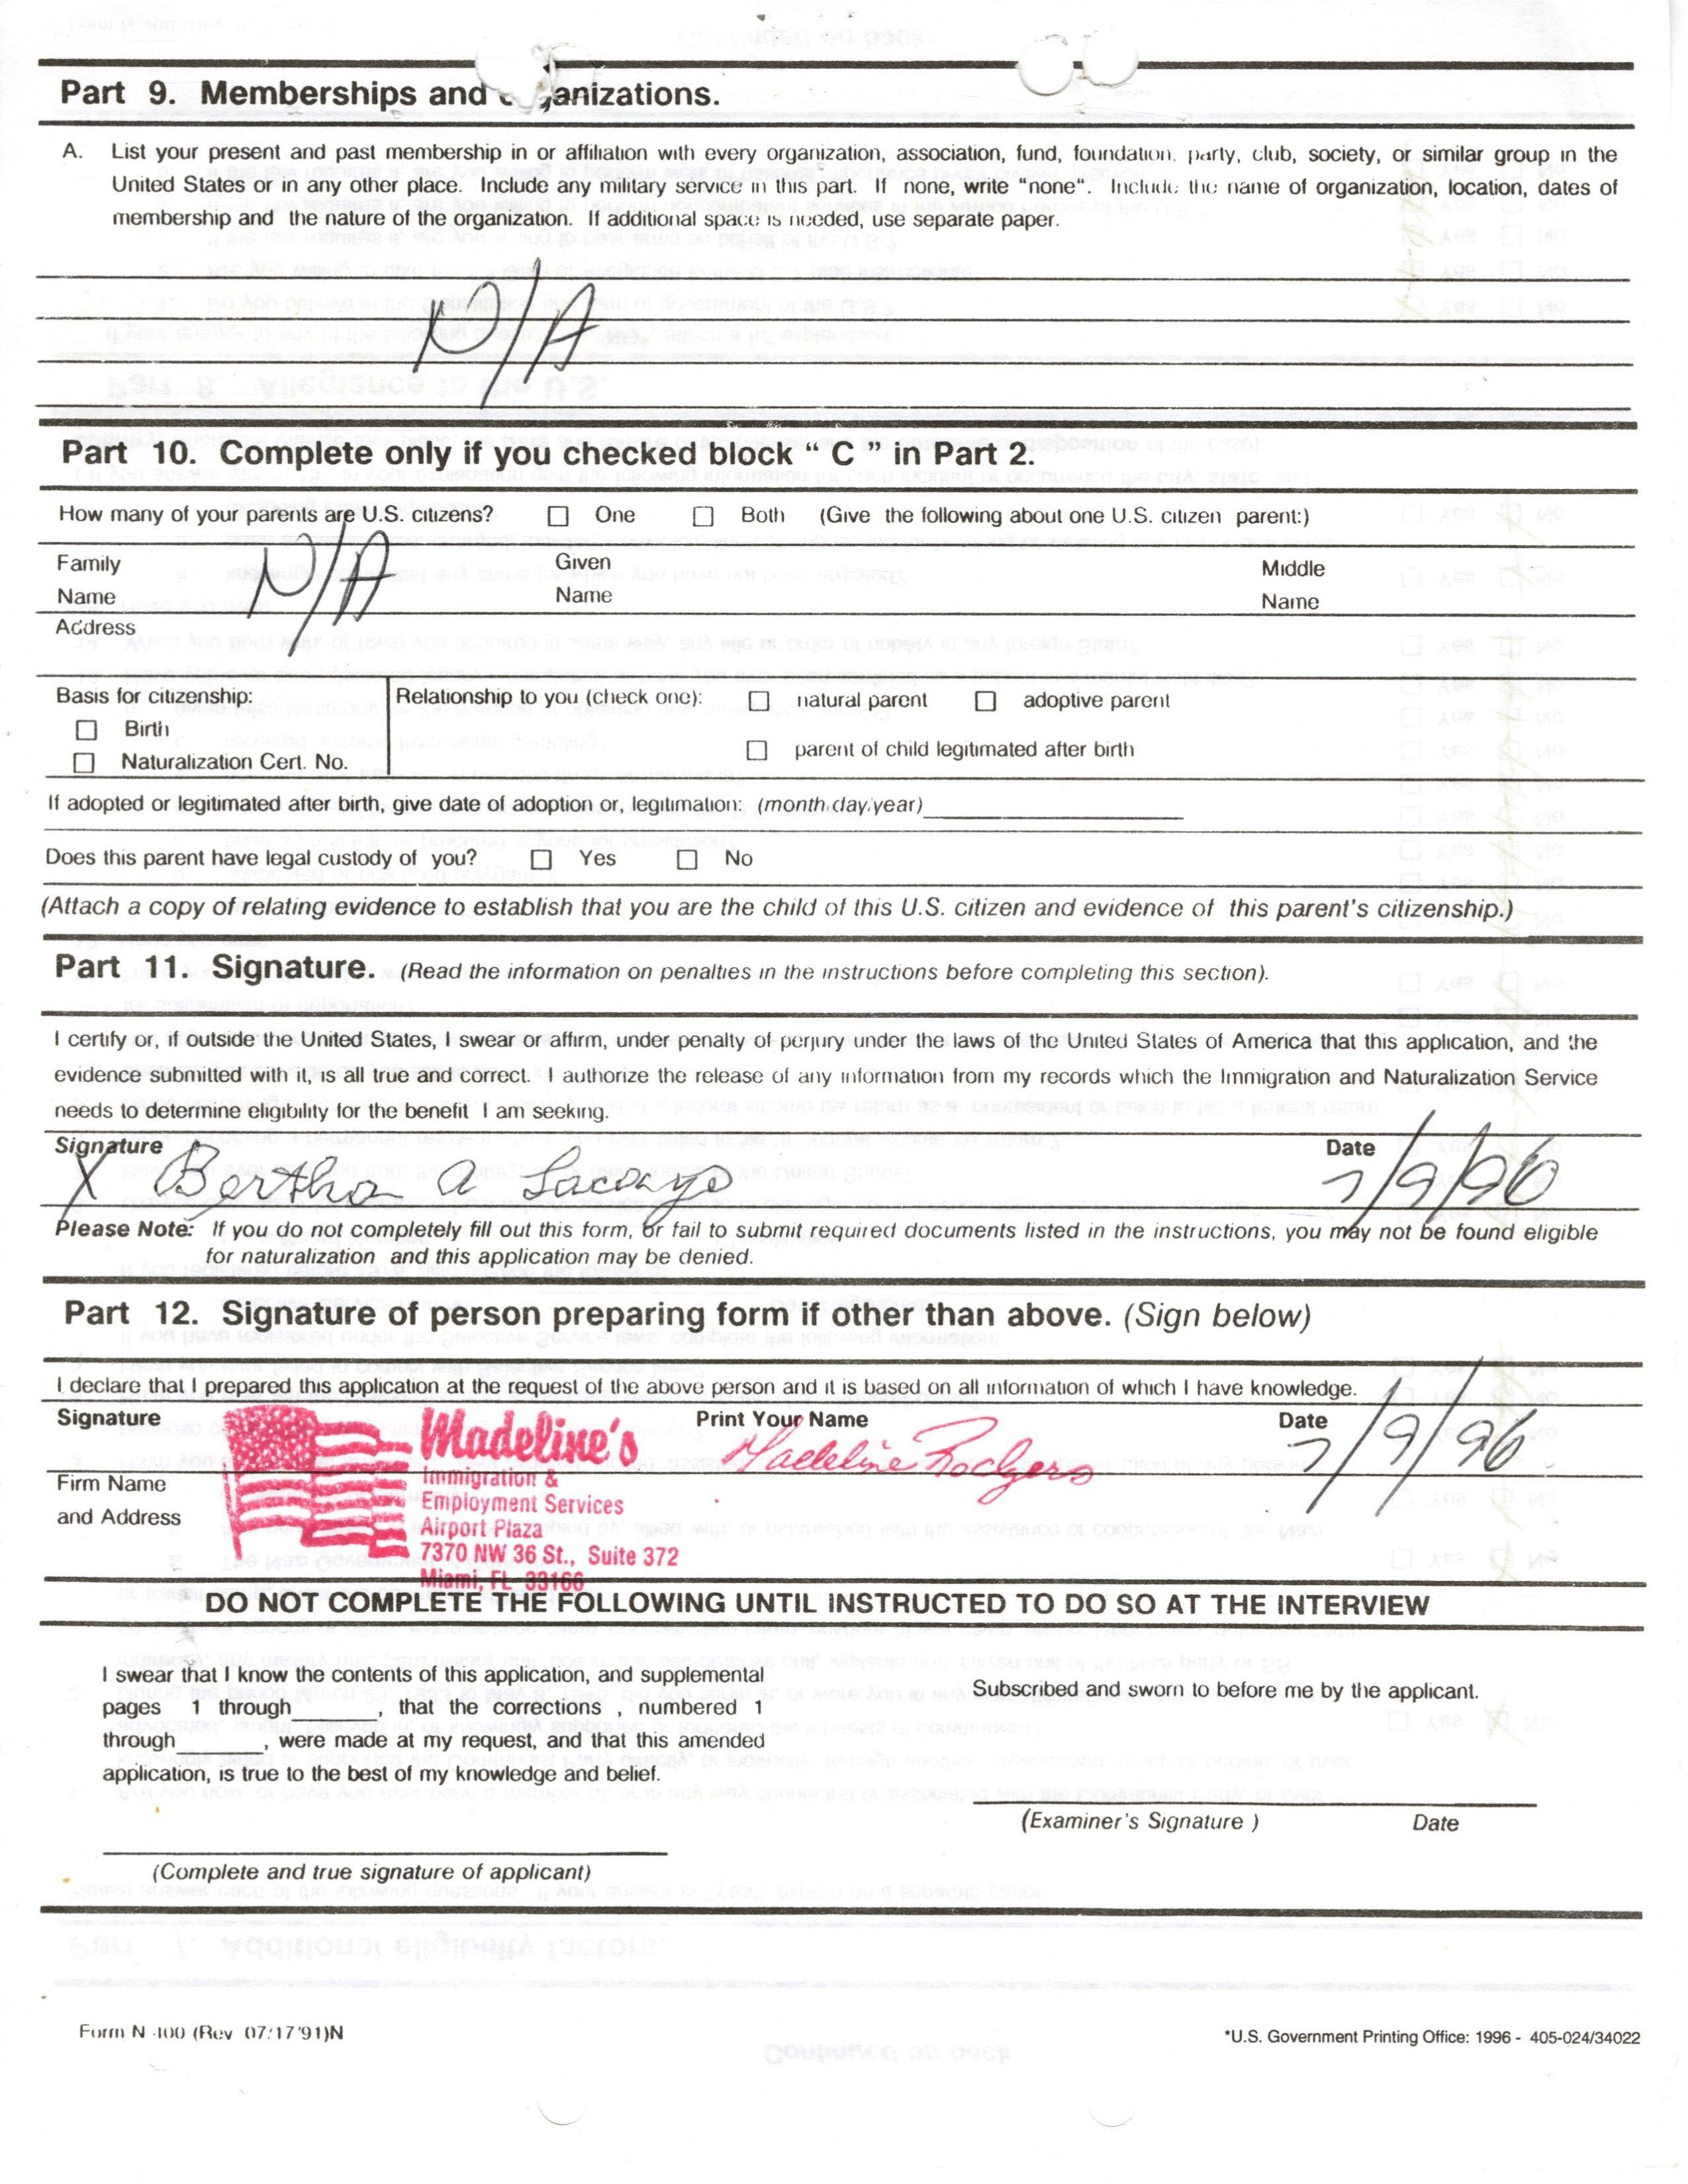 Part 9. Memberships and anizations.
A. List your present and past membership in or affiliation with every organization, association, fund, foundation, party, club, society, or similar group in the
United States or in any other place. Include any military service in this part. If none, write "none". Include the name of organization, location, dates of
membership and the nature of the organization. If additional space is needed, use separate paper.
N/A
Part 10. Complete only if you checked block " C " in Part 2.
How many of your parents are U.S. citizens? ☐ One ☐ Both (Give the following about one U.S. citizen parent:)
Family Given Middle
Name N/A Name Name
Address
Basis for citizenship: Relationship to you (check one): ☐ natural parent ☐ adoptive parent
☐ Birth
☐ parent of child legitimated after birth
☐ Naturalization Cert. No.
If adopted or legitimated after birth, give date of adoption or, legitimation: (month/day/year)
Does this parent have legal custody of you? ☐ Yes ☐ No
(Attach a copy of relating evidence to establish that you are the child of this U.S. citizen and evidence of this parent's citizenship.)
Part 11. Signature. (Read the information on penalties in the instructions before completing this section).
I certify or, if outside the United States, I swear or affirm, under penalty of perjury under the laws of the United States of America that this application, and the
evidence submitted with it, is all true and correct. I authorize the release of any information from my records which the Immigration and Naturalization Service
needs to determine eligibility for the benefit I am seeking.
Signature Date
X Bertha A Lacayo 7/9/96
Please Note: If you do not completely fill out this form, or fail to submit required documents listed in the instructions, you may not be found eligible
for naturalization and this application may be denied.
Part 12. Signature of person preparing form if other than above. (Sign below)
I declare that I prepared this application at the request of the above person and it is based on all information of which I have knowledge.
Signature Print Your Name Date
Madeline's Madeline Rodgers 7/9/96
Firm Name
and Address
Immigration &
Employment Services
Airport Plaza
7370 NW 36 St., Suite 372
Miami, FL 33166
DO NOT COMPLETE THE FOLLOWING UNTIL INSTRUCTED TO DO SO AT THE INTERVIEW
I swear that I know the contents of this application, and supplemental
pages 1 through______, that the corrections , numbered 1
through______, were made at my request, and that this amended
application, is true to the best of my knowledge and belief.
Subscribed and sworn to before me by the applicant.
(Examiner's Signature ) Date
(Complete and true signature of applicant)
Form N-400 (Rev 07/17/91)N *U.S. Government Printing Office: 1996 - 405-024/34022